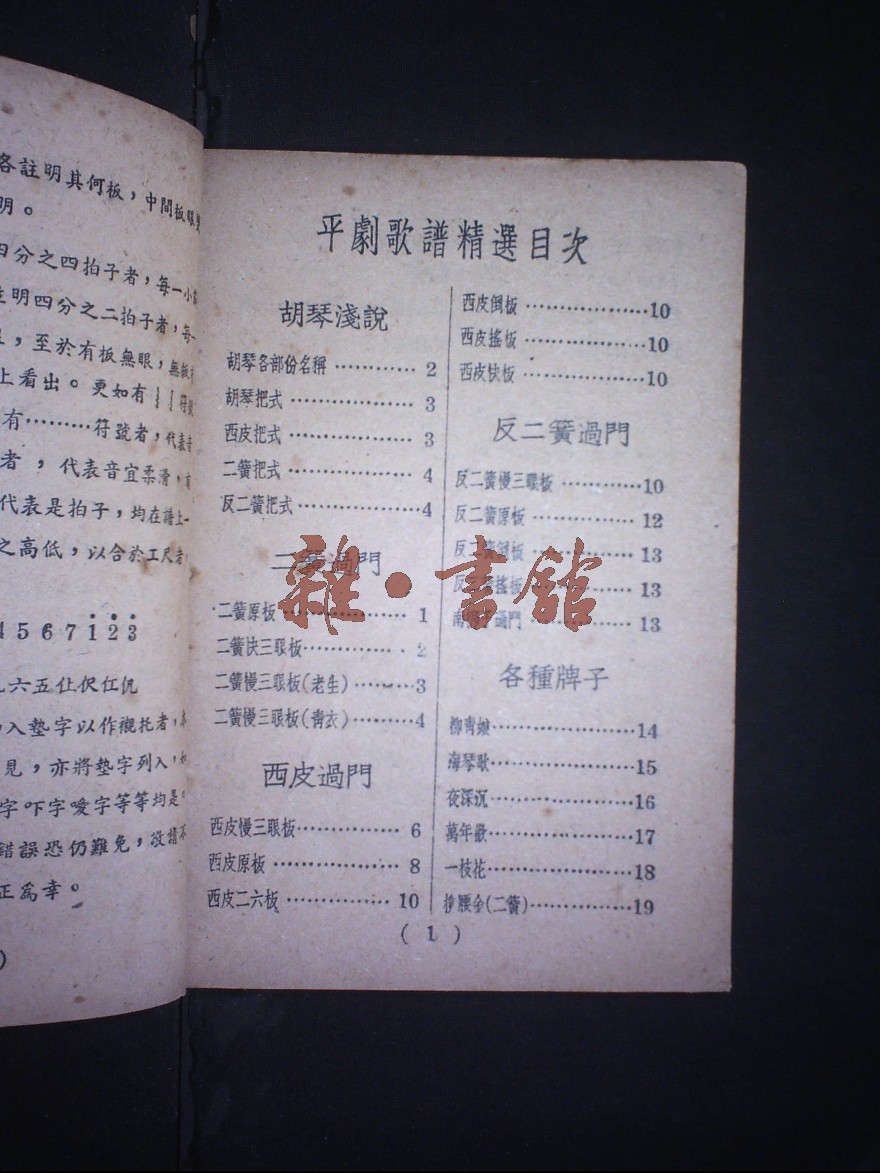 各註明其何板，中間板眼
明。
四分之四拍子者，每一小
註明四分之二拍子者，每一
，至於有板無眼，無板
上看出。更如有⌇⌇符號
有………符號者，代表音
者，代表音宜柔滑，有
代表是拍子，均在譜上一
之高低，以合於工尺者
4 5 6 7 1̇ 2̇ 3̇
六五仩伬仜伬
入墊字以作襯托者，
見，亦將墊字列入，如
字吓字噯字等等均是。
錯誤恐仍難免，敬請不
正爲幸。
)
平劇歌譜精選目次
胡琴淺說
胡琴各部份名稱…………2
胡琴把式………………3
西皮把式………………3
二簧把式………………4
反二簧把式……………4
二簧過門
二簧原板………………1
二簧快三眼板…………2
二簧慢三眼板(老生)………3
二簧慢三眼板(靑衣)………4
西皮過門
西皮慢三眼板……………6
西皮原板………………8
西皮二六板……………10
西皮倒板………………10
西皮搖板………………10
西皮快板………………10
反二簧過門
反二簧慢三眼板…………10
反二簧原板……………12
反二簧倒板……………13
反二簧搖板……………13
南 過門……………13
各種牌子
柳靑娘………………14
海琴歌………………15
夜深沉………………16
萬年歡………………17
一枝花………………18
腰金(二簧)……………19
( 1 )
雜·書館